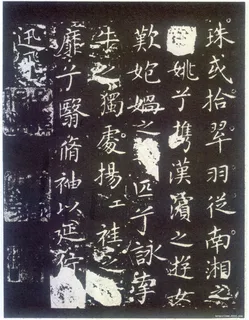 珠或拾翠羽從南湘之
姚兮攜漢濱之遊女
歎媧之匹兮詠牽
牛之獨處揚輕袿之
靡兮翳脩袖以延佇
迅